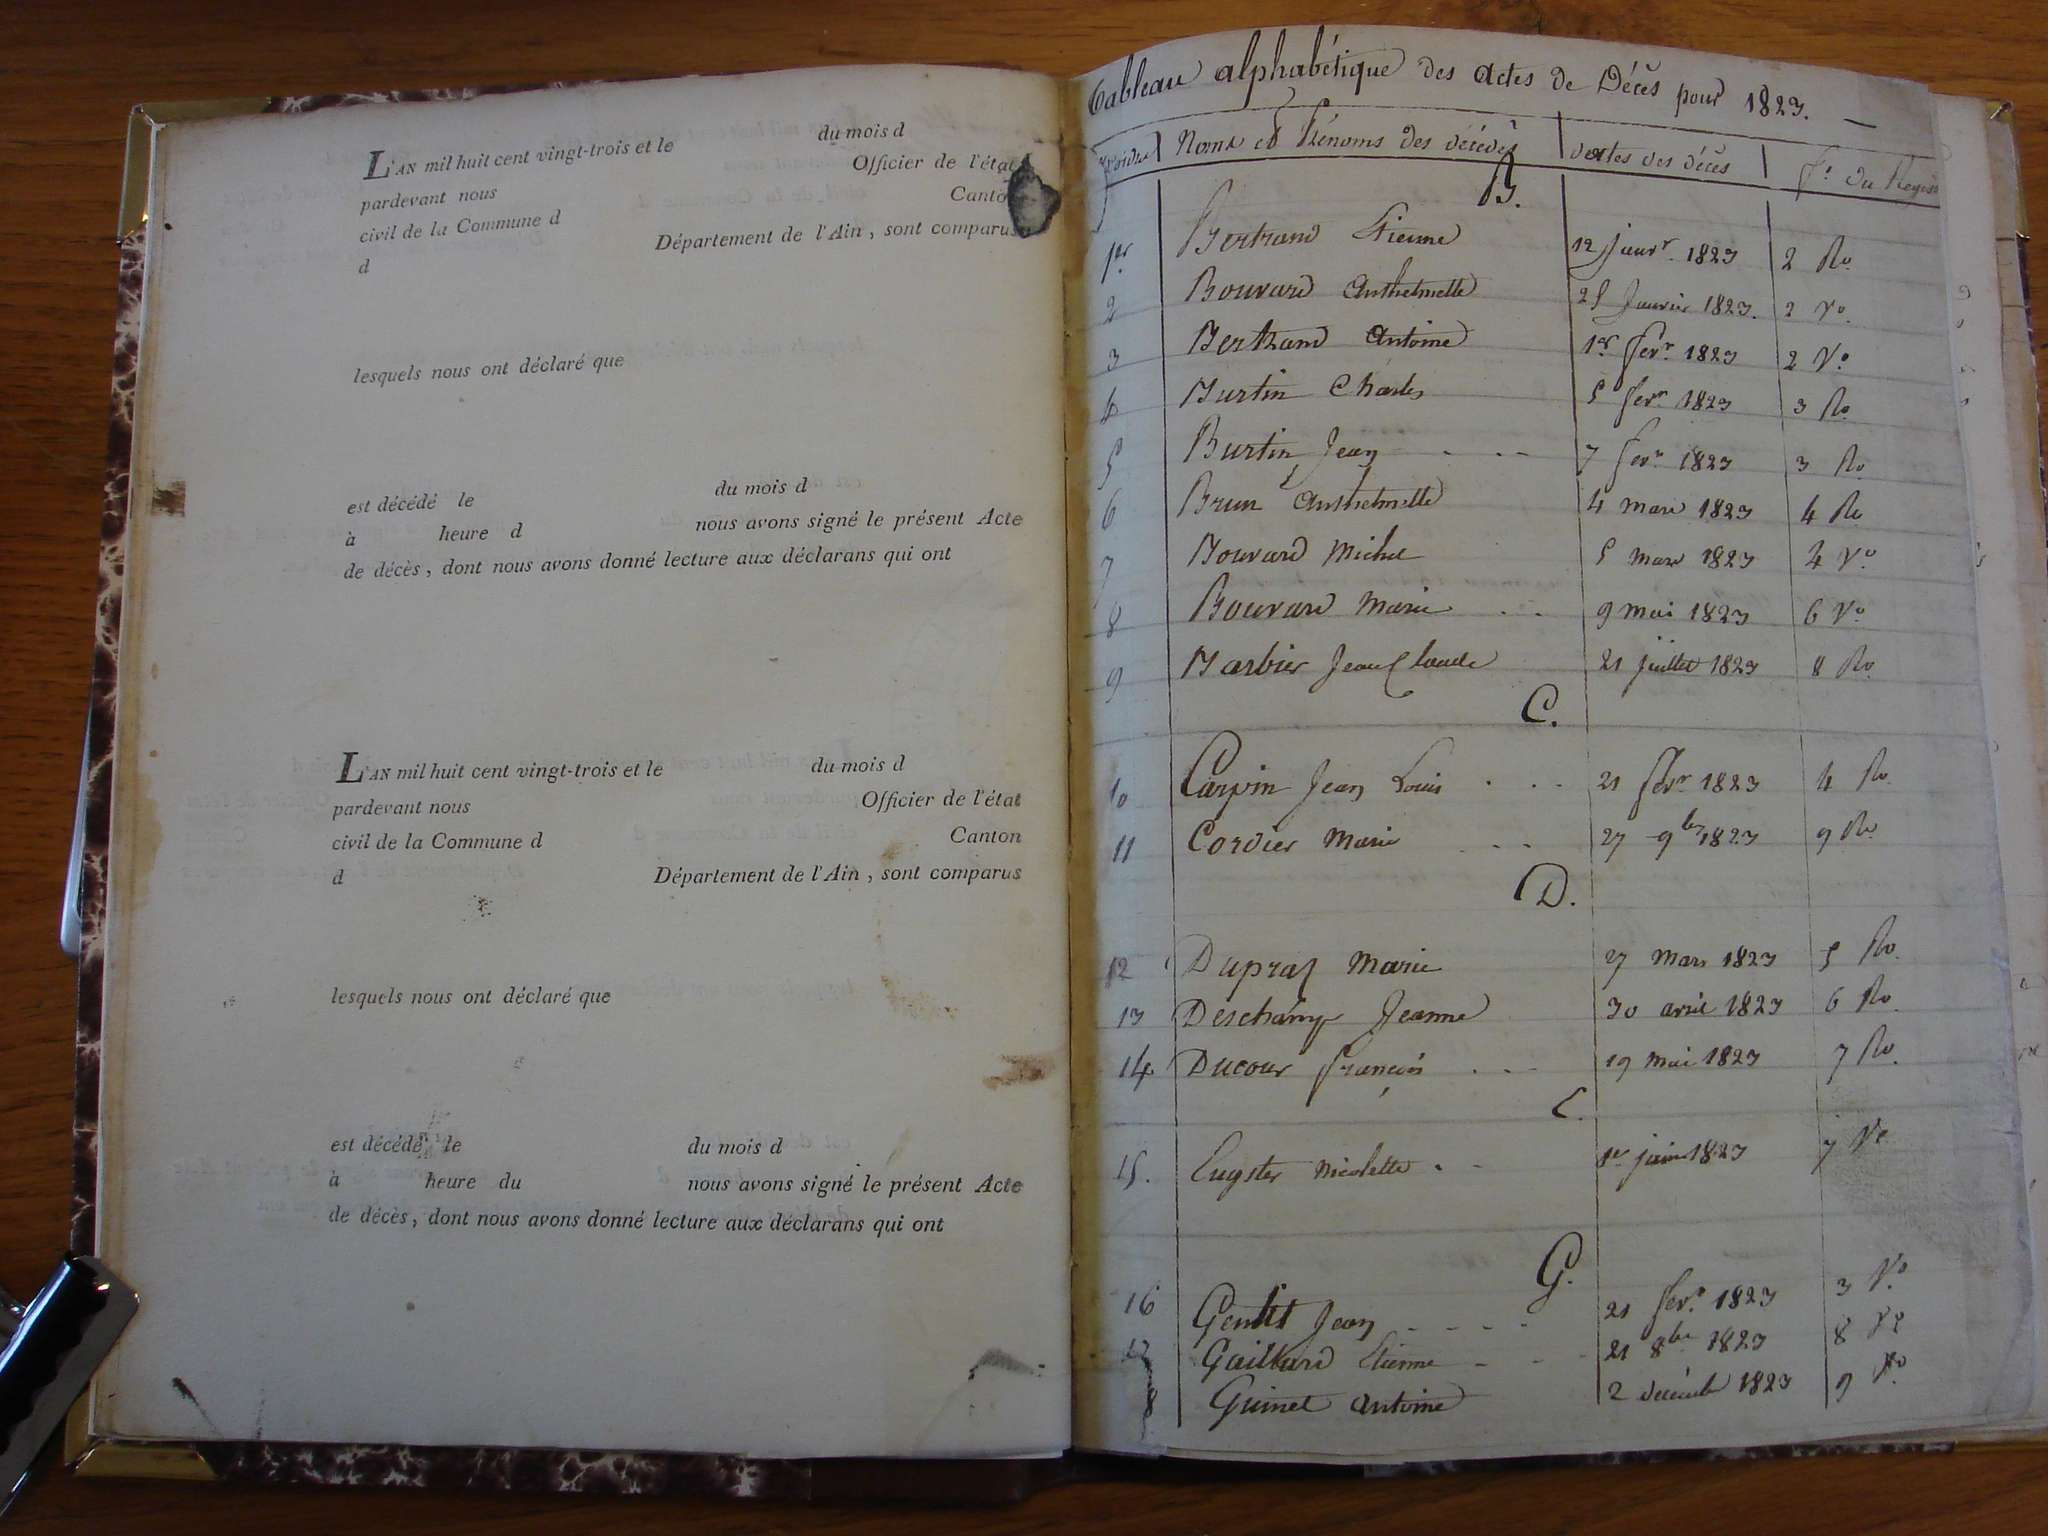 L'AN mil huit cent vingt-trois et le du mois d
pardevant nous Officier de l'état
civil de la Commune d Canton
d Département de l'Ain, sont comparus
lesquels nous ont déclaré que
est décédé le du mois d
à heure d nous avons signé le présent Acte
de décès, dont nous avons donné lecture aux déclarans qui ont
L'AN mil huit cent vingt-trois et le du mois d
pardevant nous Officier de l'état
civil de la Commune d Canton
d Département de l'Ain, sont comparus
lesquels nous ont déclaré que
est décédé le du mois d
à heure du nous avons signé le présent Acte
de décès, dont nous avons donné lecture aux déclarans qui ont
Tableau alphabétique des actes de Décès pour 1823.
Noms et Prénoms des décédés dates des décès fo. du Regist
B.
1er Bertrand Etienne 12 janvr. 1823 2 Ro.
2 Bouvard Anthelmette 25 Janvier 1823. 2 Vo.
3 Bertrand Antoine 1er fevr. 1823 2 Vo.
4 Burtin Charles 5 fevr. 1823 3 Ro.
5 Burtin Jean 7 fevr. 1823 3 Ro
6 Brun Anthelmette 4 mars 1823 4 Ro
7 Bouvard Michel 5 mars 1823 4 Vo.
8 Bouvard Marie 9 mai 1823 6 Vo.
9 Barbier Jean Claude 21 juillet 1823 8 Ro.
C.
10 Carpin Jean Louis 21 fevr 1823 4 Ro.
11 Cordier Marie 27 9bre 1823 9 Ro.
D.
12 Dupraz Marie 27 Mars 1823 5 Ro.
13 Deschamp Jeanne 30 avril 1823 6 Ro.
14 Ducour François 19 mai 1823 7 Ro.
E.
15. Eugster Nicolette 1er juin 1823 7 Vo
G.
16 Gentit Jean 21 fevr. 1823 3 Vo.
17 Gaillard Etienne 21 8bre 1823 8 Vo
8 Guinet Antoine 2 décembre 1823 9 Ro.